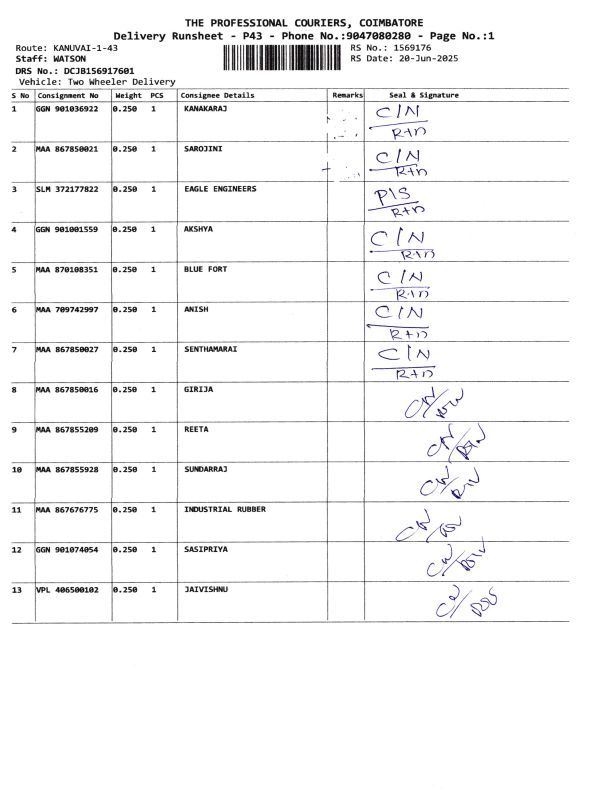 THE PROFESSIONAL COURIERS, COIMBATORE
Delivery Runsheet - P43 - Phone No.:9047080280 - Page No.:1
Route: KANUVAI-1-43 RS No.: 1569176
Staff: WATSON RS Date: 20-Jun-2025
DRS No.: DCJB156917601
Vehicle: Two Wheeler Delivery
S No Consignment No Weight PCS Consignee Details Remarks Seal & Signature
1 GGN 901036922 0.250 1 KANAKARAJ C/N
Rtn
2 MAA 867850021 0.250 1 SAROJINI C/N
Rtn
3 SLM 372177822 0.250 1 EAGLE ENGINEERS P/S
Rtn
4 GGN 901001559 0.250 1 AKSHYA C/N
Rtn
5 MAA 870108351 0.250 1 BLUE FORT C/N
Rtn
6 MAA 709742997 0.250 1 ANISH C/N
Rtn
7 MAA 867850027 0.250 1 SENTHAMARAI C/N
Rtn
8 MAA 867850016 0.250 1 GIRIJA
9 MAA 867855209 0.250 1 REETA
10 MAA 867855928 0.250 1 SUNDARRAJ
11 MAA 867676775 0.250 1 INDUSTRIAL RUBBER
12 GGN 901074054 0.250 1 SASIPRIYA
13 VPL 406500102 0.250 1 JAIVISHNU